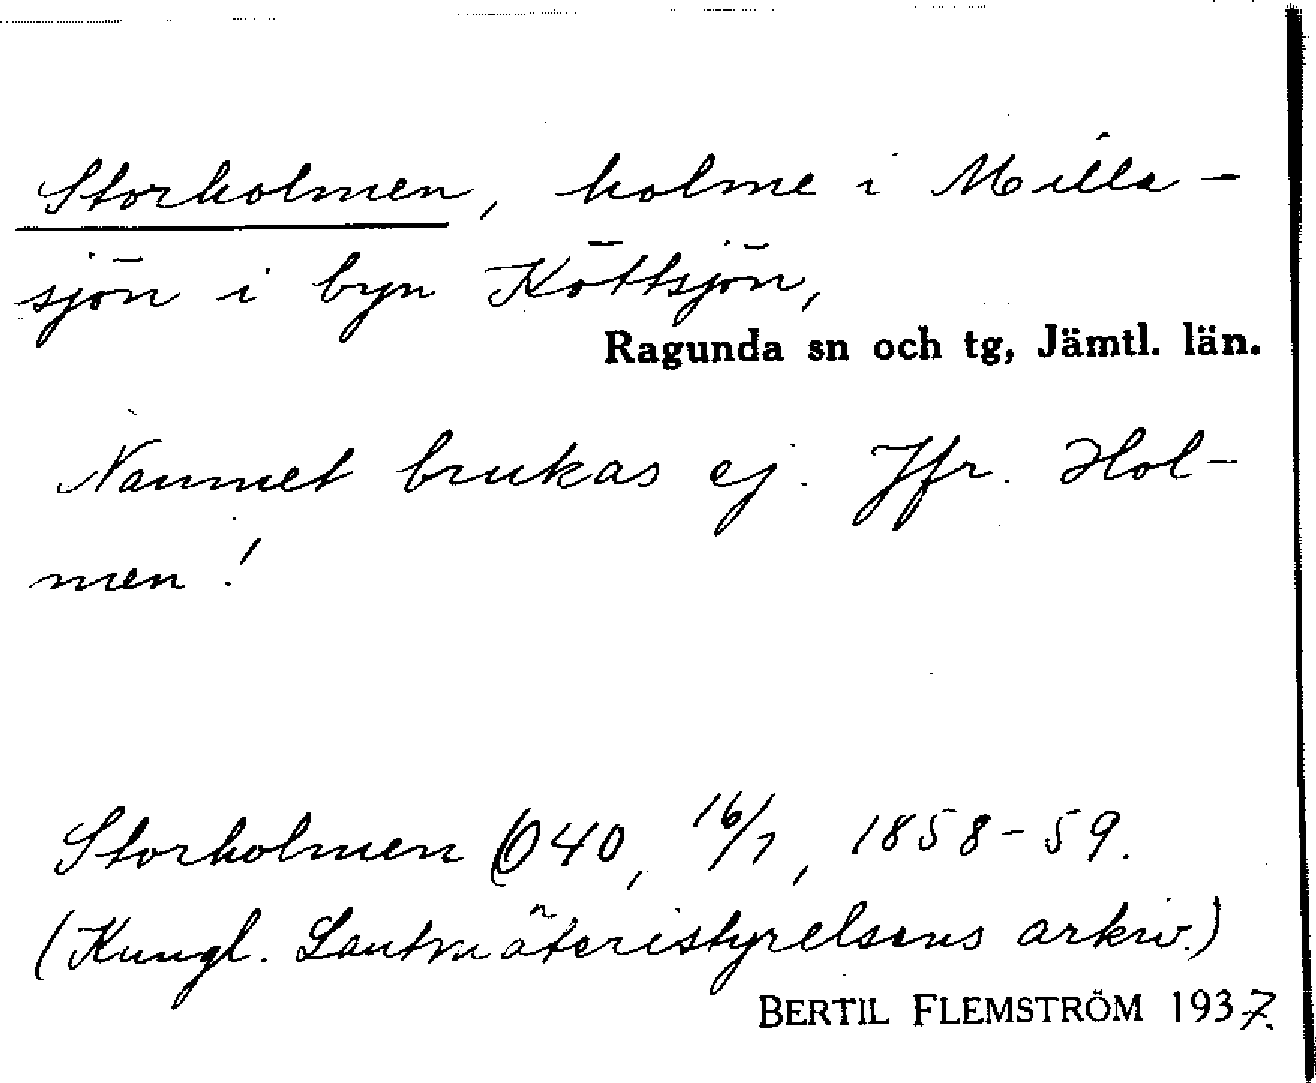 Storholmen, holme i Milla-
sjön i byn Köttsjön,
Ragunda sn och tg, Jämtl. län.
Namnet brukas ej. Jfr. Hol-
men!
Storholmen O40, 16/7, 1858-59.
(Kungl. Lantmäteristyrelsens arkiv.)
BERTIL FLEMSTRÖM 1937.